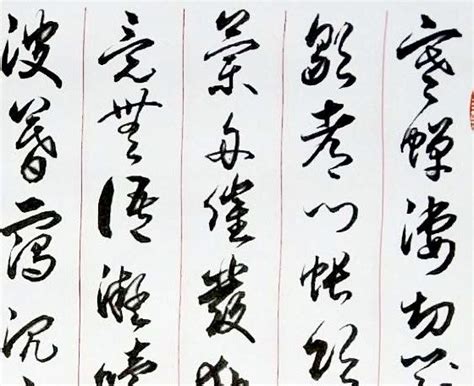 寒蟬淒切對
歇都門帳飲
蘭舟催發執
竟無語凝噎
波暮靄沉